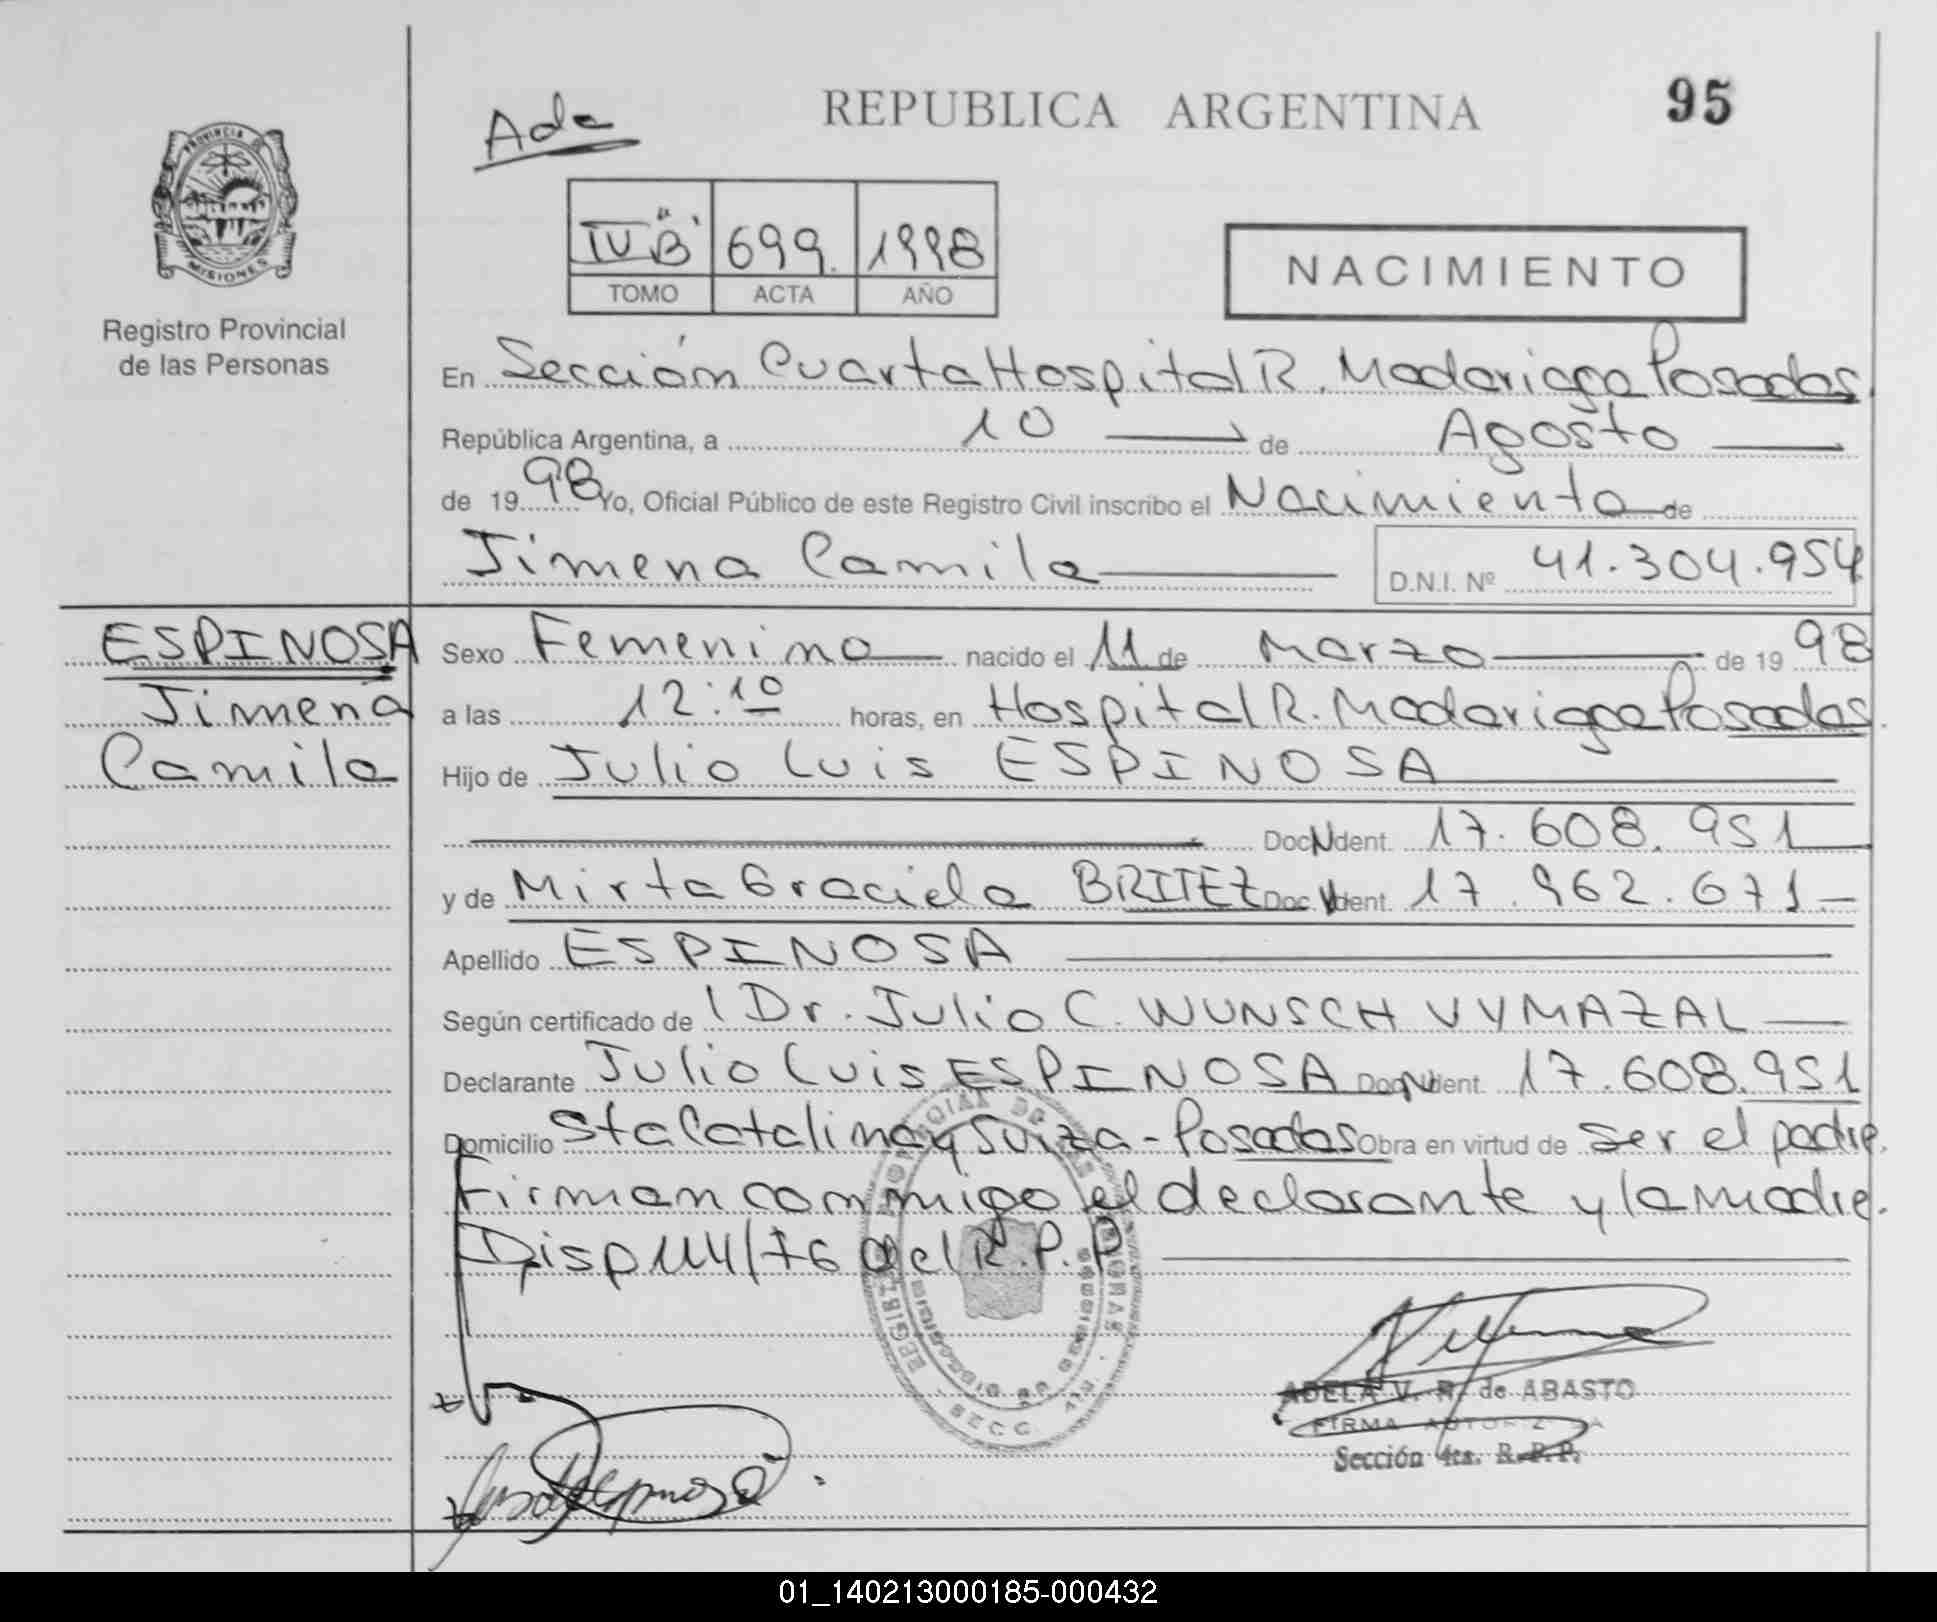 REPUBLICA ARGENTINA
95
Ada
IV "B"
699.
1998
TOMO
ACTA
AÑO
NACIMIENTO
PROVINCIA
MISIONES
Registro Provincial
de las Personas
En Sección Cuarta Hospital R. Madariaga Posadas.
República Argentina, a 10 de Agosto
de 1998 Yo, Oficial Público de este Registro Civil inscribo el Nacimiento de
Jimena Camila D.N.I. Nº 41.304.954
ESPINOSA
Jimena
Camila
Sexo Femenino nacido el 11 de Marzo de 1998
a las 12:10 horas, en Hospital R. Madariaga Posadas.
Hijo de Julio Luis ESPINOSA
Doc. N Ident. 17.608.951
y de Mirta Graciela BRITEZ Doc. N Ident. 17.962.671.-
Apellido ESPINOSA
Según certificado de Dr. Julio C. WUNSCH VYMAZAL
Declarante Julio Luis ESPINOSA Doc. N Ident. 17.608.951
Domicilio Sta Catalina y Suiza - Posadas Obra en virtud de ser el padre.
Firman conmigo el declarante y la madre.
Disp 114/76 del R.P.P
ADELA V. R. de ABASTO
FIRMA AUTORIZADA
Sección 4ta. R.P.P.
01_140213000185-000432